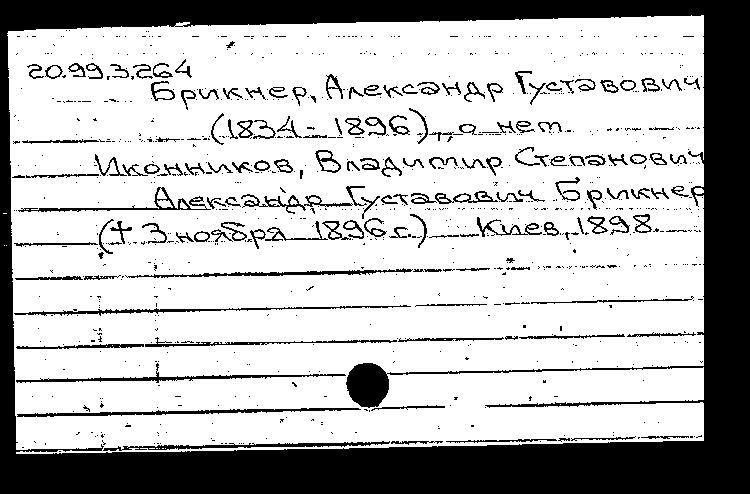 20.99.3.264
Брикнер, Александр Густавович
(1834 - 1896), о нем.
Иконников, Владимир Степанович
Александр Густавович Брикнер
(† 3 ноября 1896 г.) Киев, 1898.